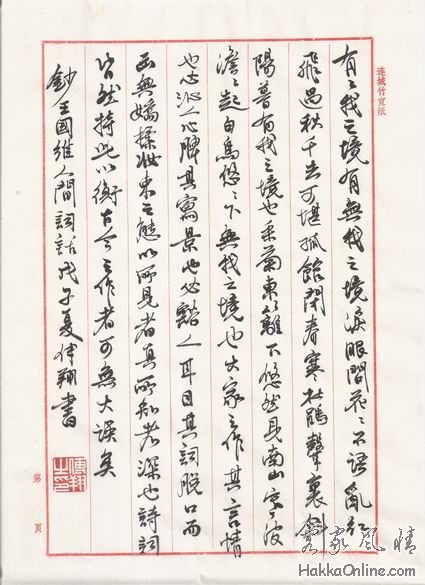 連城竹宣纸
有〻我之境有無我之境淚眼問花〻不語亂紅
飛過秋千去可堪孤館閉春寒杜鵑聲裏斜
陽暮有我之境也采菊東籬下悠然見南山寒波
澹〻起白鳥悠〻下無我之境也大家之作其言情
也必沁人心脾其寫景也必豁人耳目其詞脫口而
出無嬌揉妝束之態以所見者真所知者深也詩詞
皆然持此以衡古今之作者可無大誤矣
鈔王國維人間詞話戊子夏傅翔書
傅翔之印
第 頁
客家風情
HakkaOnline.com